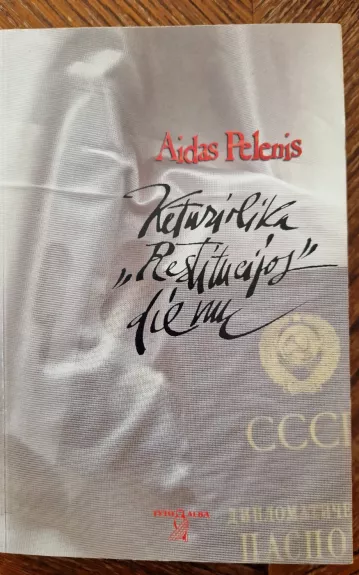 Aidas Pelenis
Keturiolika
„Restitucijos”
dienų
СССР
ДИПЛОМАТИЧЕ
ПАСПО